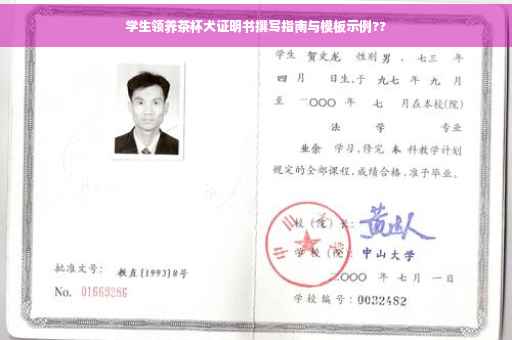 学生领养茶杯犬证明书撰写指南与模板示例??
学生 贺文龙 性别 男 、七三 年
四 月 日生,于 九七 年 九 月
至 二〇〇〇 年 七 月在本校(院)
法 学 专业
业余 学习,修完 本 科教学计划
规定的全部课程,成绩合格,准予毕业。
校(院)长:
学校(院): 中山大学
二〇〇〇 年 七 月 一 日
学校编号:0032482
批准文号: 教直[1993]8号
No. 01669286